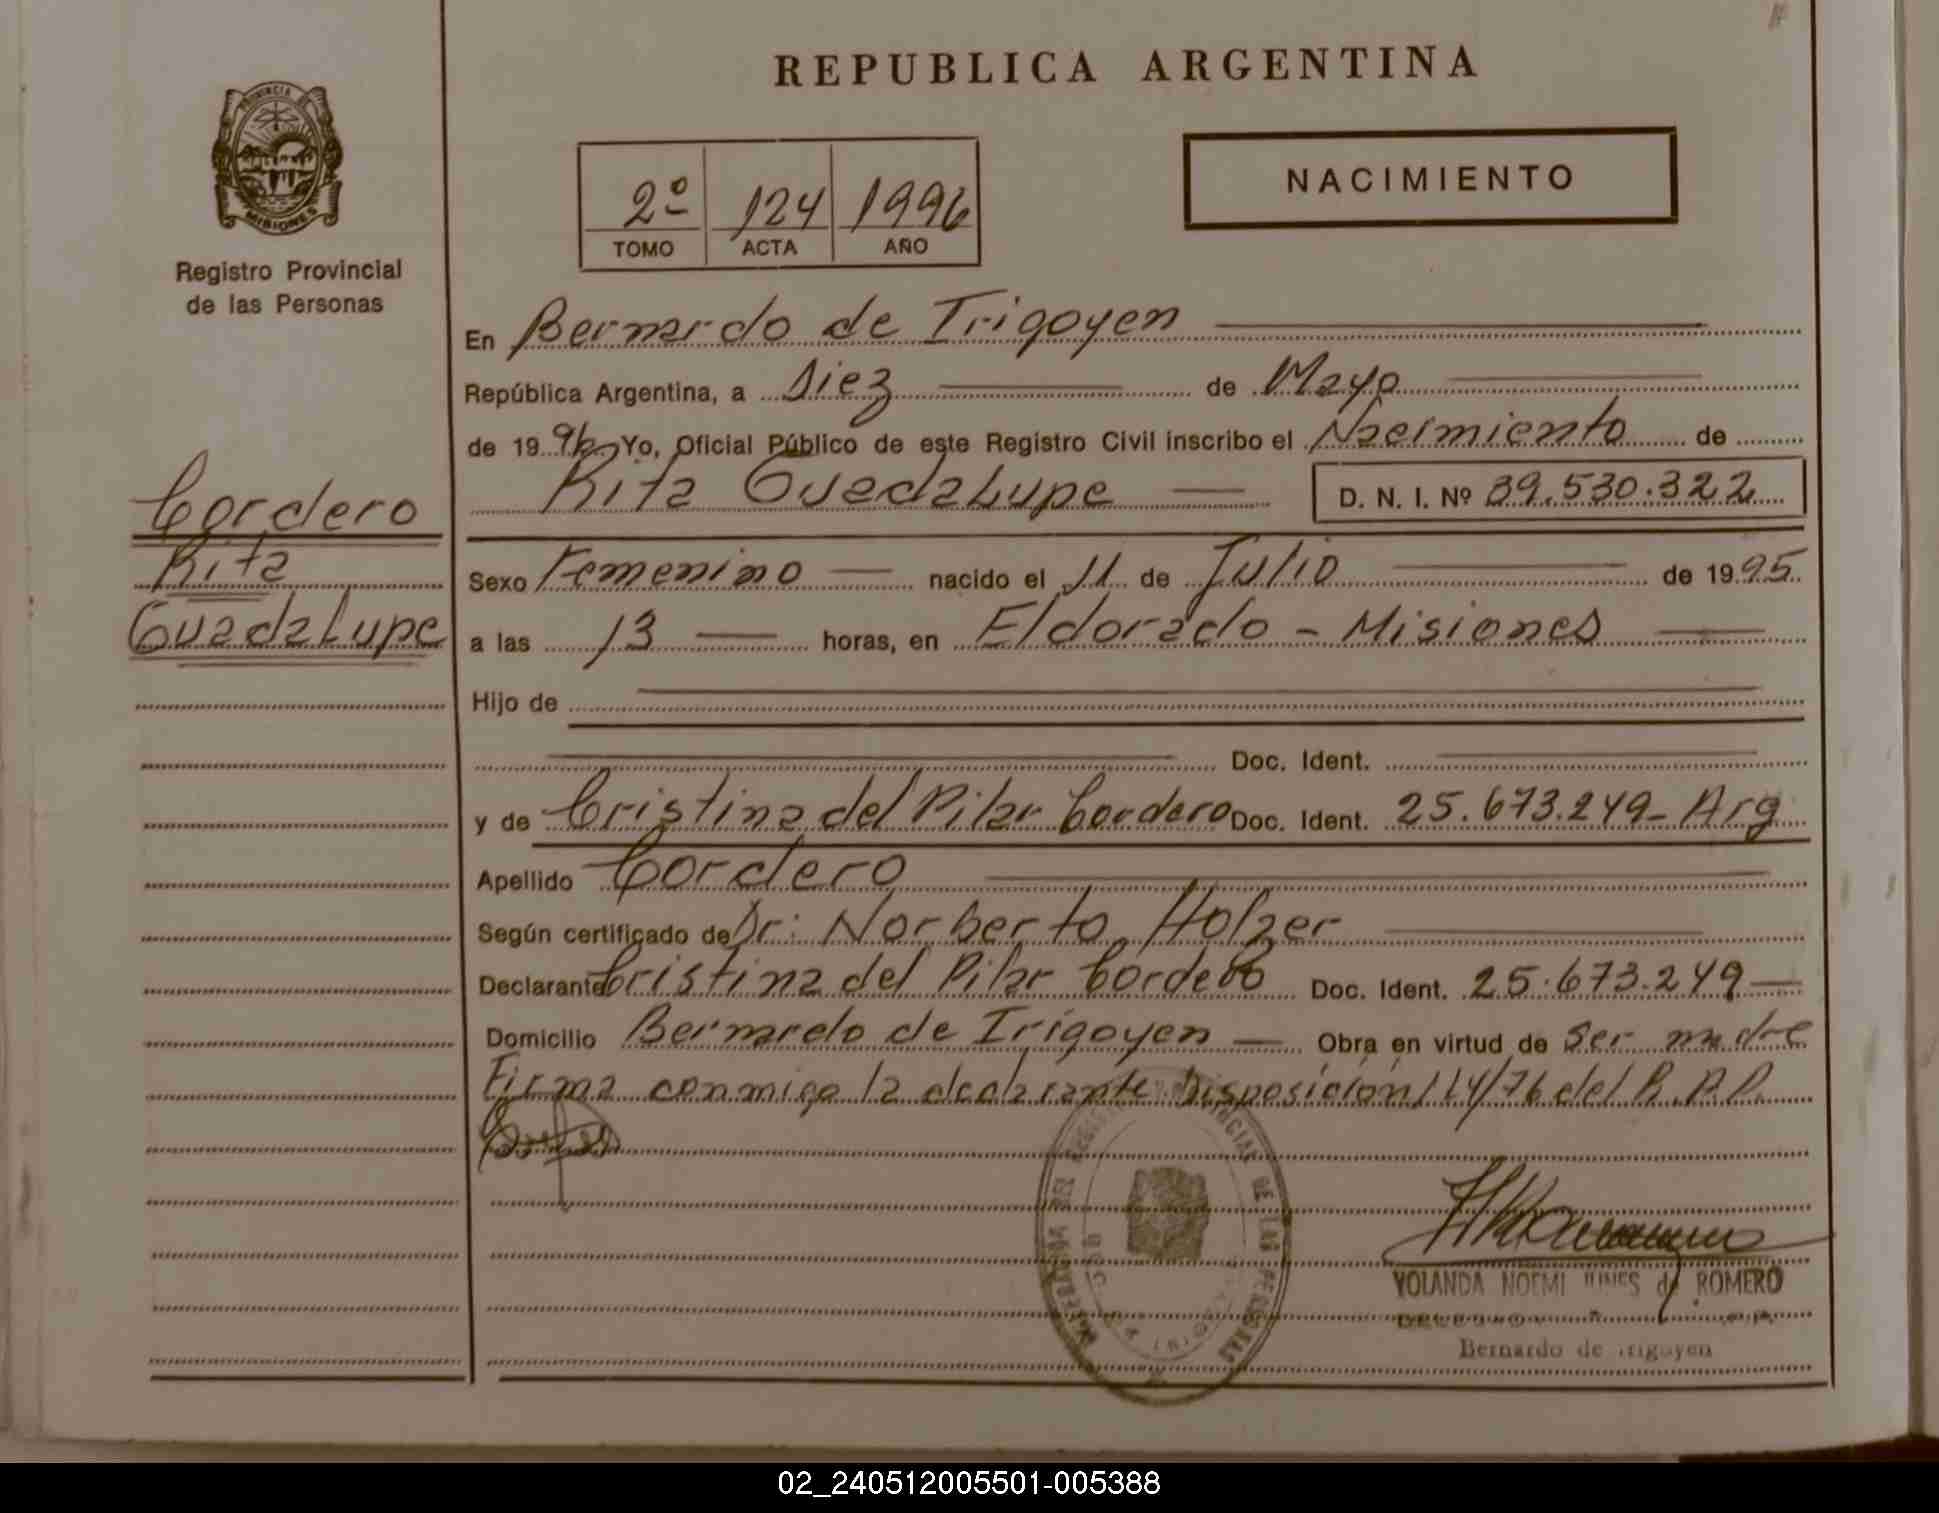 REPUBLICA ARGENTINA
PROVINCIA DE
MISIONES
Registro Provincial
de las Personas
2º 124 1996
TOMO ACTA AÑO
NACIMIENTO
En Bernardo de Irigoyen
República Argentina, a Diez de Mayo
de 1996 Yo, Oficial Público de este Registro Civil inscribo el Nacimiento de
Rita Guadalupe D. N. I. Nº 39.530.322
Cordero
Rita
Guadalupe
Sexo Femenino nacido el 11 de Julio de 1995
a las 13 horas, en Eldorado - Misiones
Hijo de
Doc. Ident.
y de Cristina del Pilar Cordero Doc. Ident. 25.673.249- Arg
Apellido Cordero
Según certificado de Dr: Norberto Holzer
Declarante Cristina del Pilar Cordero Doc. Ident. 25.673.249
Domicilio Bernardo de Irigoyen Obra en virtud de ser madre
Firma conmigo la declarante Disposición 114/76 del R.P.P.
DE LAS PERSONAS
YOLANDA NOEMI de ROMERO
Bernardo de Irigoyen
02_240512005501-005388